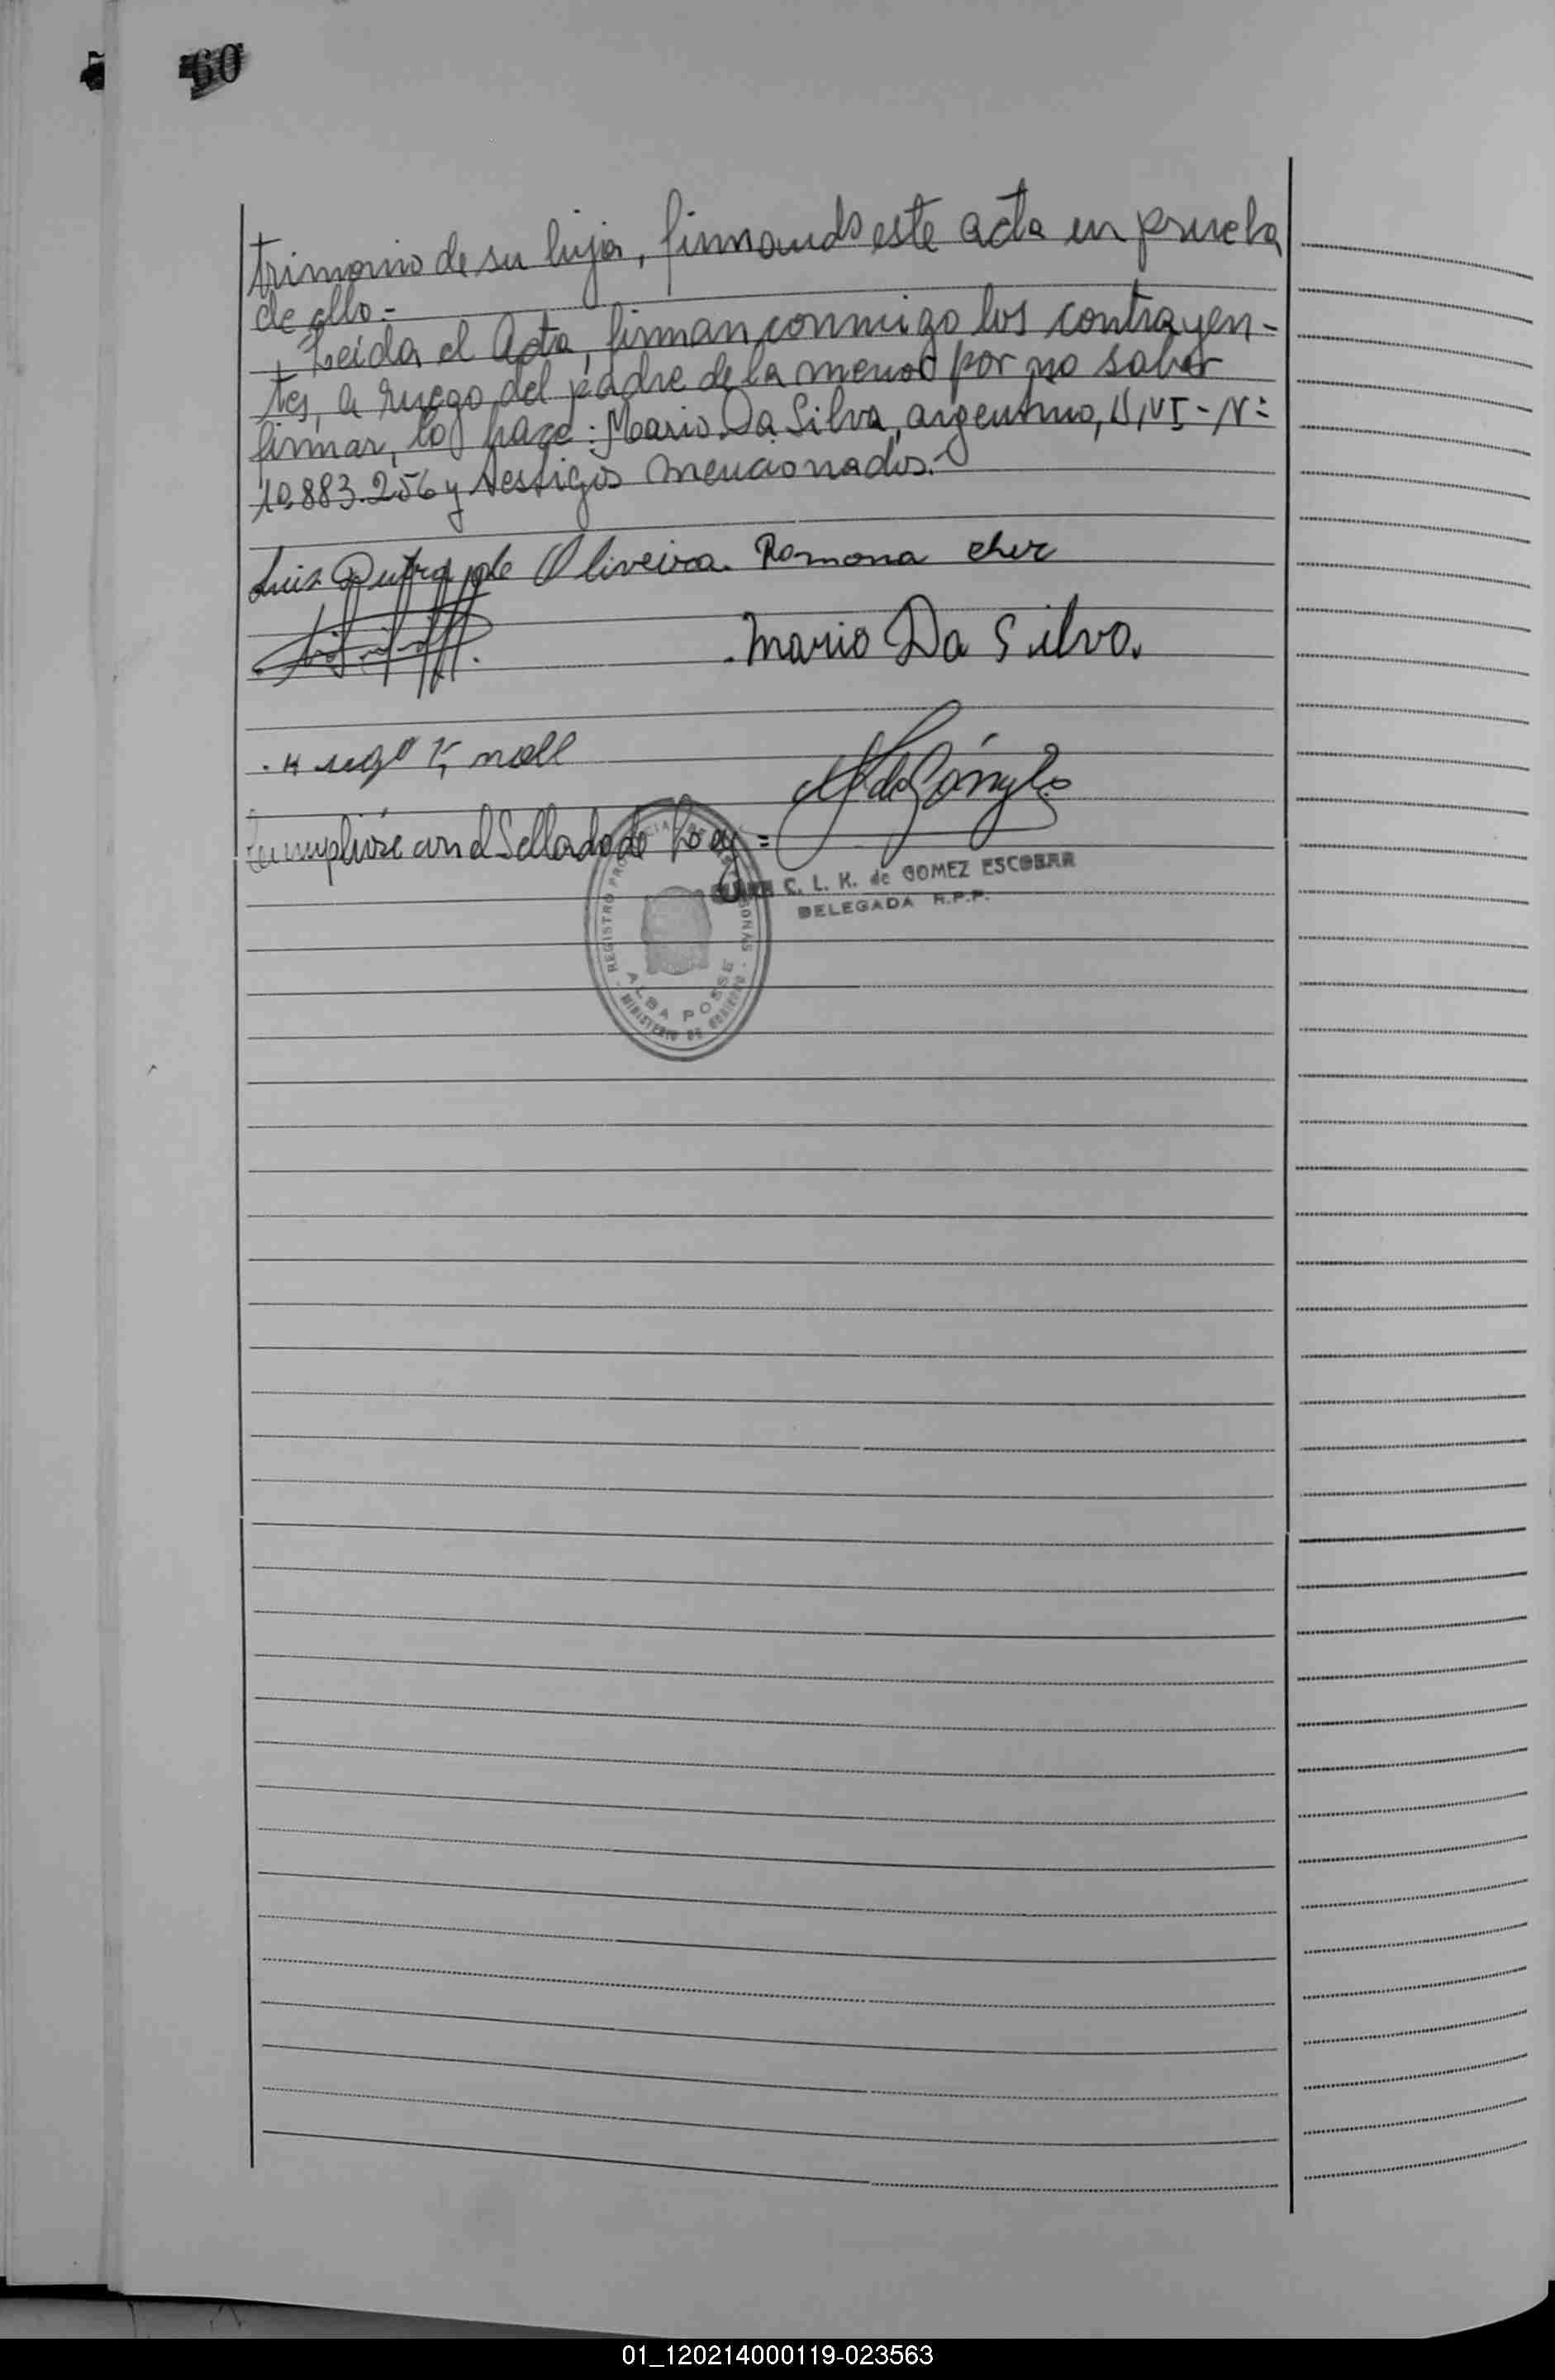 60
trimonio de su hija, firmando este acta en prueba
de ello.-
Leída el Acta, firman conmigo los contrayen-
tes, a ruego del padre de la menor por no saber
firmar, lo hace: Mario Da Silva, argentino,
10.883.256 y testigos mencionados.-
Luis Dutra de Oliveira. Ramona
Mario Da Silva.
Hugo
Cumplióse con el Sellado de Ley =
C. L. K. de GOMEZ ESCOBAR
DELEGADA R.P.P.
REGISTRO
ALBA POSSE
MINISTERIO DE GOBIERNO
01_120214000119-023563